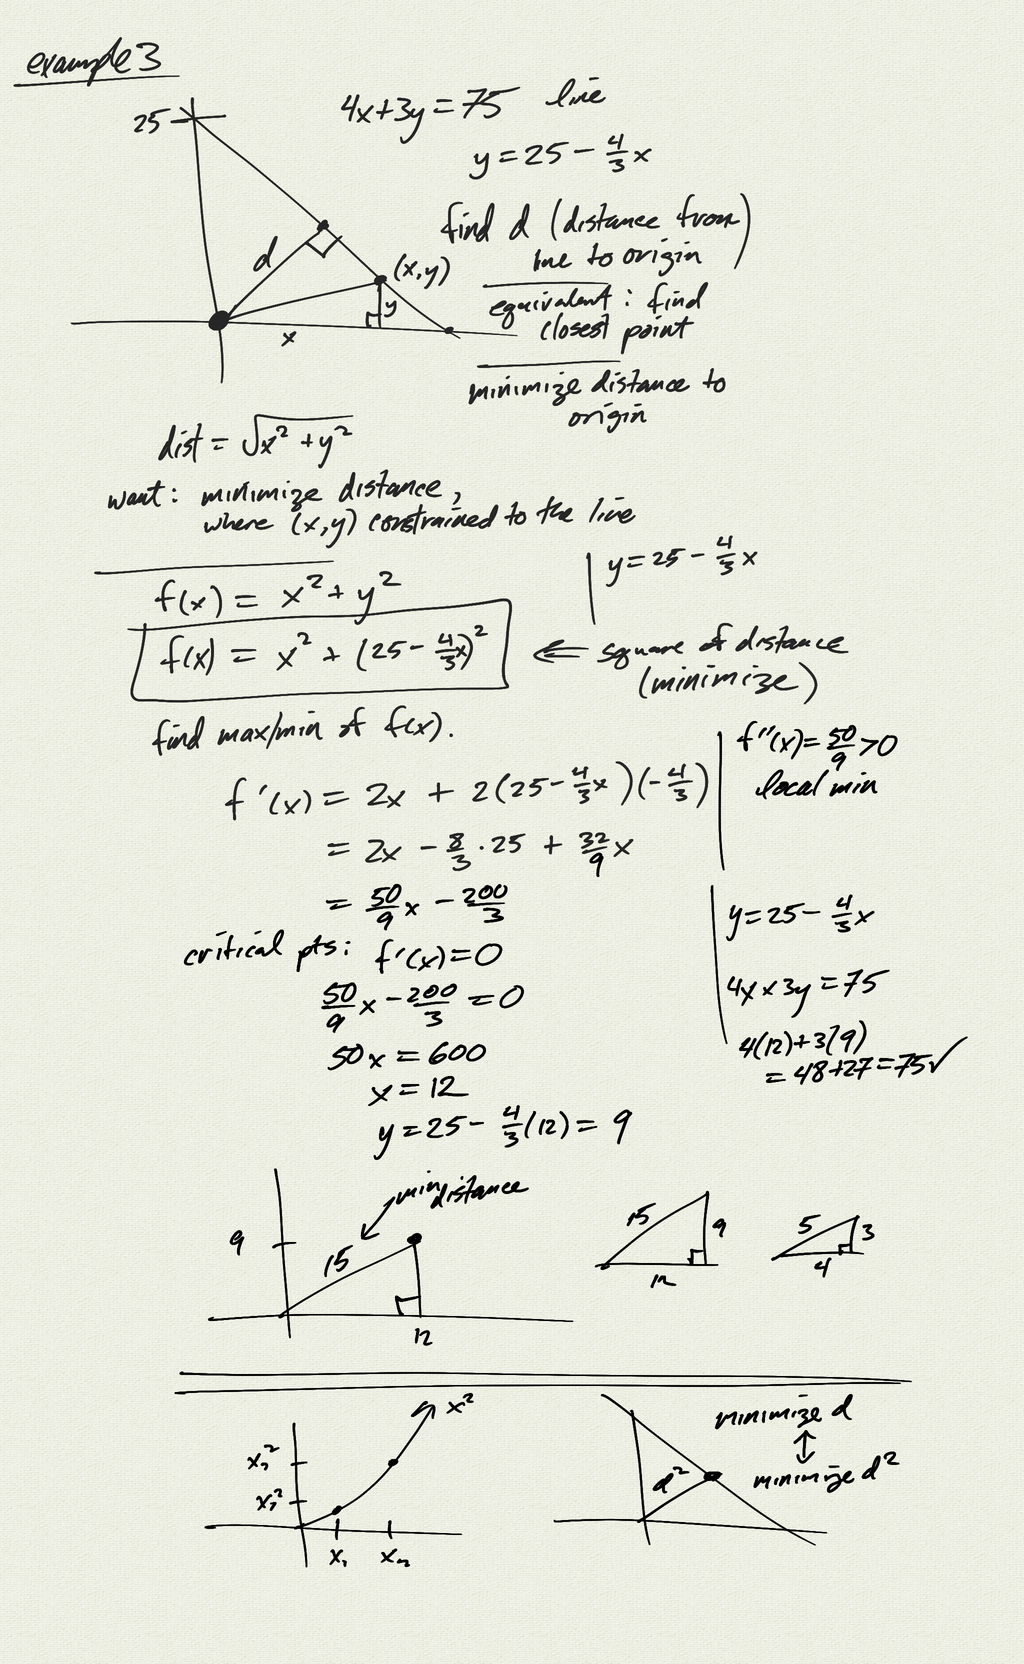 example 3
25
4x+3y=75 line
y=25-4/3x
find d (distance from
line to origin)
d
(x,y)
y
x
equivalent: find
closest point
minimize distance to
origin
dist = √x²+y²
want: minimize distance,
where (x,y) constrained to the line
f(x) = x²+y²
y=25-4/3x
f(x) = x²+(25-4/3x)²
⇐ square of distance
(minimize)
find max/min of f(x).
f''(x)=50/9>0
local min
f'(x) = 2x + 2(25-4/3x)(-4/3)
= 2x - 8/3·25 + 32/9x
= 50/9x - 200/3
y=25-4/3x
critical pts: f'(x)=0
50/9x-200/3=0
4x×3y=75
50x=600
4(12)+3(9)
=48+27=75✓
x=12
y=25-4/3(12)=9
min distance
9
15
12
15
9
12
5
3
4
x²
x₂²
x₁²
x₁
x₂
minimize d
↕
minimize d²
d²